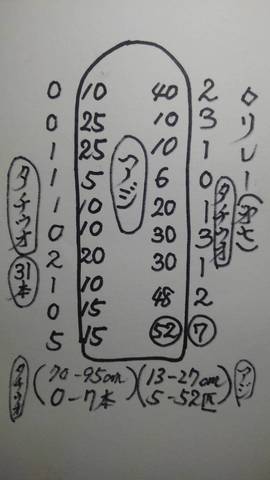 リレー
0 10 40 2
0 25 10 3
1 25 10 1
1 5 6 0
1 10 20 1
0 10 30 3
2 20 30 1
1 10 48 2
0 15 52 7
5 15
アジ
タチウオ
タチウオ
31本
タチウオ (70-95cm 0-7本) (13-27cm 5-52匹) アジ